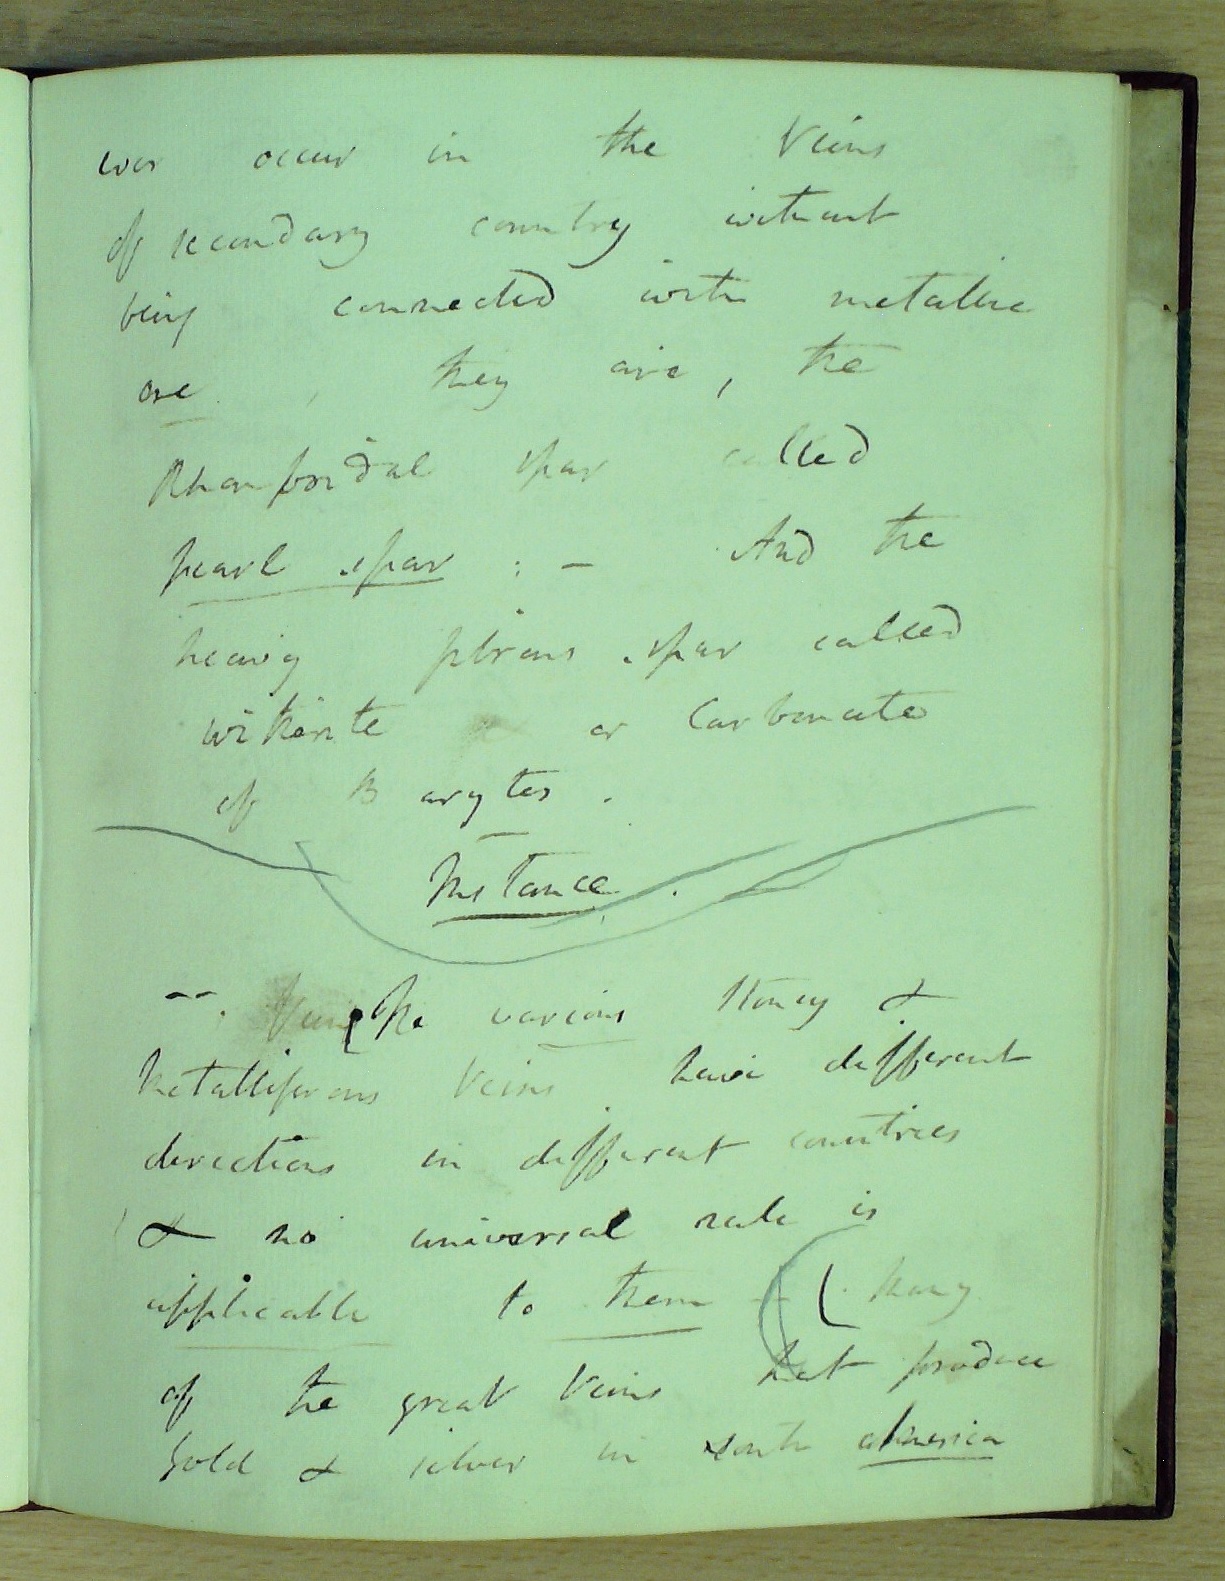 ever occur in the Veins
of secondary country without
being connected with metallic
ore, they are, the
Rhomboidal spar called
pearl spar : – And the
heavy fibrous spar called
witherite or Carbonate
of Barytes .
Instance .
The various Stoney &
Metalliferous Veins have different
directions in different countries
& no universal rule is
applicable to them – (. Many
of the great Veins that produce
Gold & silver in South America